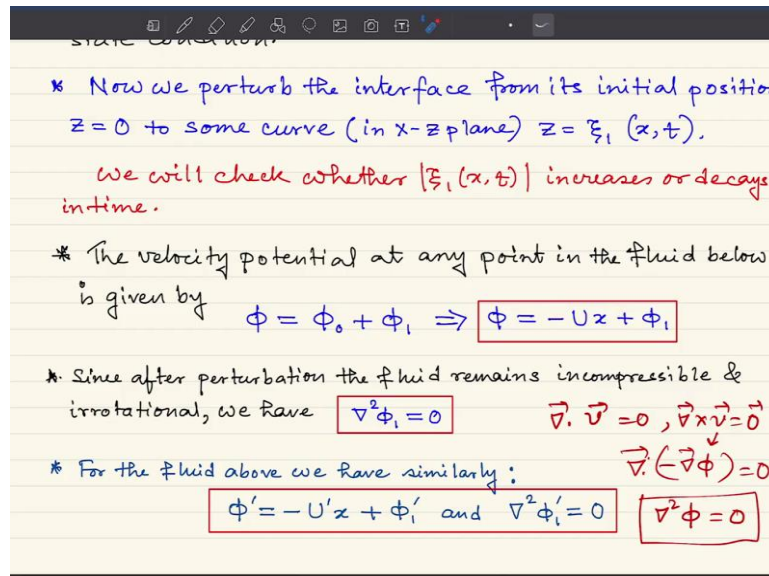 state condition.
* Now we perturb the interface from its initial positio
z = 0 to some curve (in x-z plane) z = ξ₁ (x, t).
We will check whether |ξ₁ (x, t)| increases or decays
in time.
* The velocity potential at any point in the fluid below
is given by ϕ = ϕ₀ + ϕ₁ ⇒ ϕ = - Ux + ϕ₁
* Since after perturbation the fluid remains incompressible &
irrotational, we have ∇²ϕ₁ = 0 ∇⃗. v⃗ = 0, ∇⃗ × v⃗ = 0⃗
* For the fluid above we have similarly: ∇⃗. (-∇⃗ϕ) = 0
ϕ' = - U'x + ϕ₁' and ∇²ϕ₁' = 0 ∇²ϕ = 0